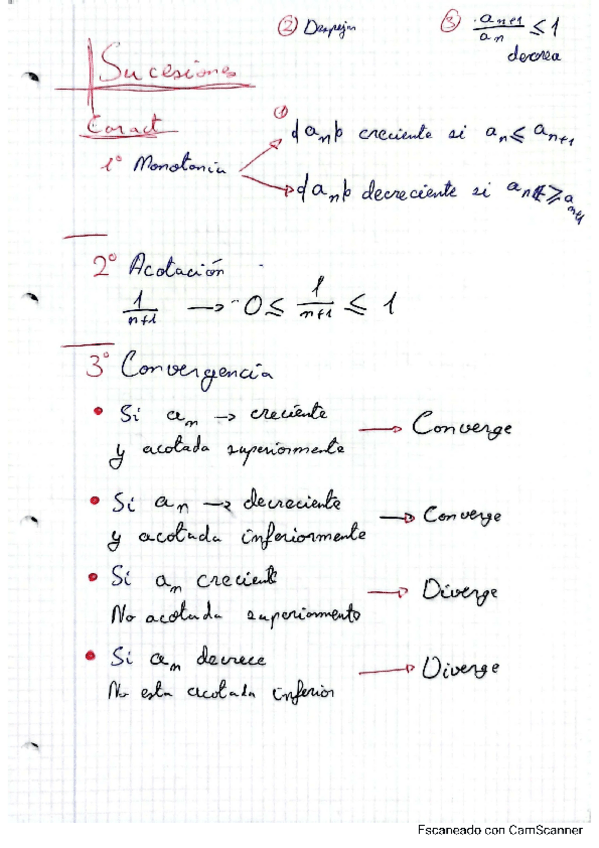 ② Despejar
③ aₙ₊₁/aₙ ≤ 1
decrea
Sucesiones
Caract
①
1° Monotonía
{aₙ} creciente si aₙ ≤ aₙ₊₁
{aₙ} decreciente si aₙ ≥ aₙ₊₁
2° Acotación
1/(n+1) → 0 ≤ 1/(n+1) ≤ 1
3° Convergencia
• Si aₙ → creciente
y acotada superiormente → Converge
• Si aₙ → decreciente
y acotada inferiormente → Converge
• Si aₙ creciente
No acotada superiormente → Diverge
• Si aₙ decrece
No esta acotada inferior → Diverge
Escaneado con CamScanner